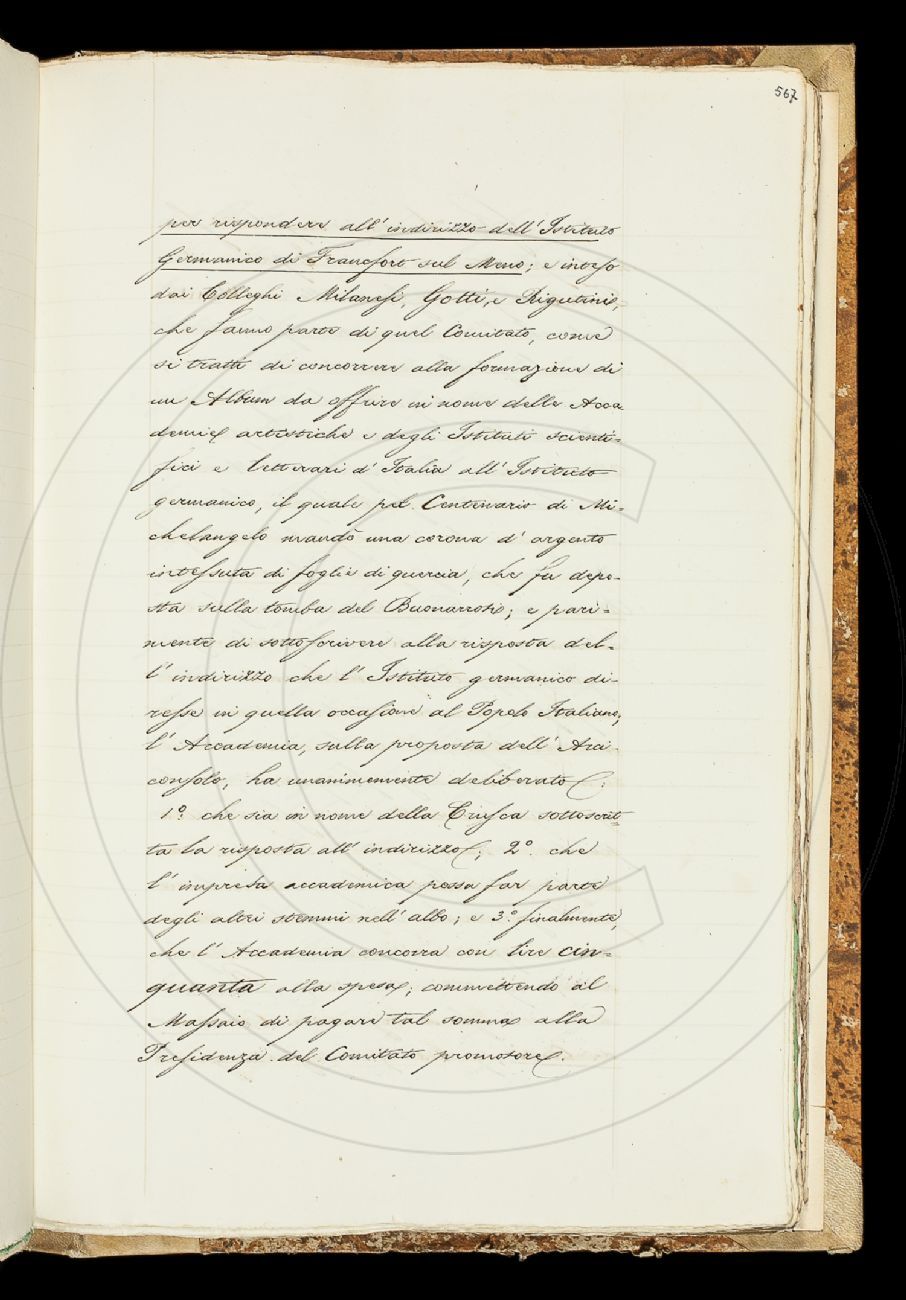 567
per rispondere all' indirizzo dell' Istituto
Germanico di Francfort sul Meno; e inteso
dai Colleghi Milanesi, Gotti, e Rigutini,
che fanno parte di quel Comitato, come
si tratti di concorrere alla formazione di
un Album da offrire in nome delle Acca
demie artistiche e degli Istituti scienti=
fici e letterari d' Italia all' Istituto
germanico, il quale pel Centenario di Mi=
chelangelo mandò una corona d' argento
intessuta di foglie di quercia, che fu depo=
sta sulla tomba del Buonarroti; e pari=
mente di sottoscrivere alla risposta del=
l' indirizzo che l' Istituto germanico di=
resse in quella occasione al Popolo Italiano;
l' Accademia, sulla proposta dell' Arci
consolo, ha unanimemente deliberato:
1.º che sia in nome della Crusca sottoscrit=
ta la risposta all' indirizzo; 2º. che
l' impresa accademica possa far parte
degli altri stemmi nell' albo; e 3.º finalmente,
che l' Accademia concorra con lire cin=
quanta alla spesa; commettendo al
Massaio di pagare tal somma alla
Presidenza del Comitato promotore.